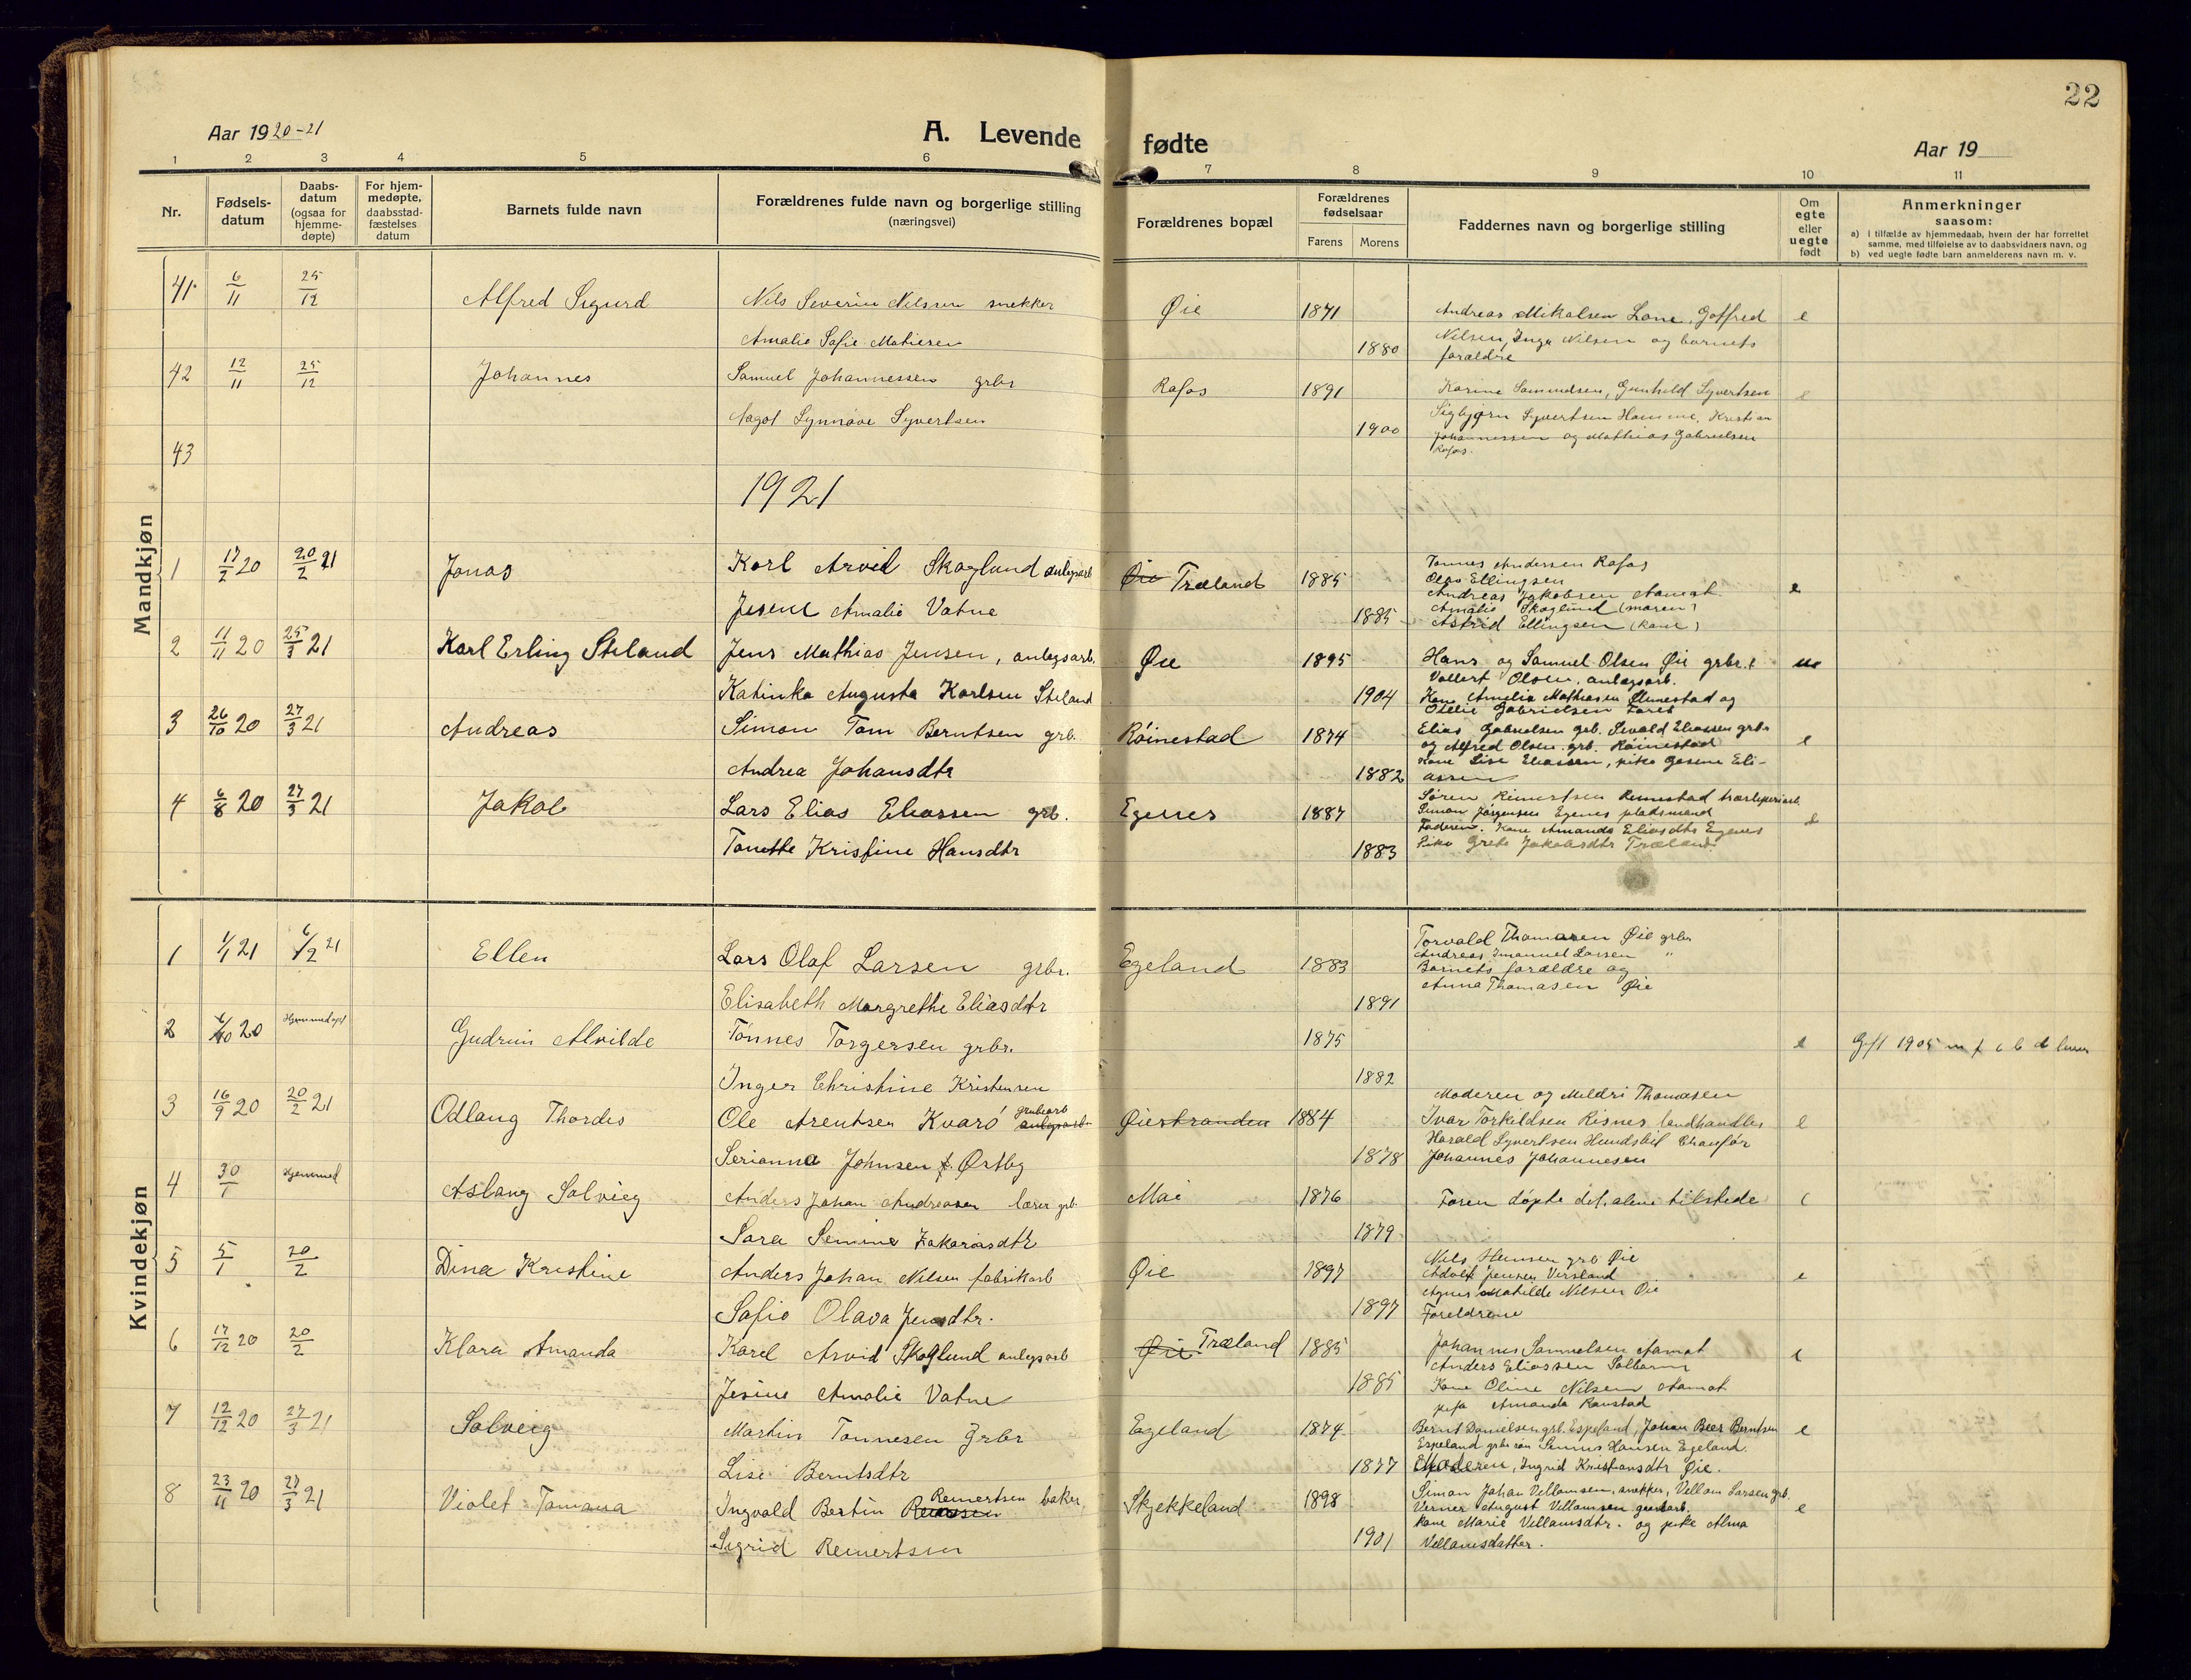 22
Aar 1920-21
A. Levende fødte
Aar 19
1 2 3 4 5 6 7 8 9 10 11
Nr.
Fødsels-
datum
Daabs-
datum
(ogsaa for
hjemme-
døpte)
For hjem-
medøpte,
daabsstad-
fæstelses
datum
Barnets fulde navn
Forældrenes fulde navn og borgerlige stilling
(næringsvei)
Forældrenes bopæl
Forældrenes
fødselsaar
Farens Morens
Faddernes navn og borgerlige stilling
Om
egte
eller
uegte
født
Anmerkninger
saasom:
a) I tilfælde av hjemmedaab, hvem der har forrettet
samme, med tilføielse av to daabsvidners navn, og
b) ved uegte fødte barn anmelderens navn m. v.
Mandkjøn
41 6/11 25/12 Alfred Sigurd Nils Severin Nilssen snekker Øie 1871 Andreas Mikalsen Lone, Gotfred e
Amalie Sofie Matiesen 1880 Nilsen, Inga Nilsen og barnets
forældre
42 12/11 25/12 Johannes Samuel Johannessen grbr Rafos 1891 Karine Samuelsen, Gunhild Syvertsen e
Aagot Synnøve Syvertsen 1900 Sigbjørn Syvertsen Homme, Kristian
Johannessen og Mathias Gabrielsen
Rafos.
43
1921
1 17/2 20 20/2 21 Jonas Karl Arvid Skoglund anlegsarb Øie Træland 1885 Tønnes Andersen Rafos
Olav Ellingsen
Andreas Jakobsen Aamot e
Jesine Amalie Vatne 1885 Amalie Skoglund (moren)
Astrid Ellingsen (kone)
2 11/11 20 25/3 21 Karl Erling Steland Jens Mathias Jensen, anlegsarb. Øie 1895 Hans og Samuel Olsen Øie grbr.
Vollert Olsen, anlægsarb.
Katinka Augusta Karlsen Steland 1904 Kone Amelia Mathiesen og
Otelie Gabrielsen
3 26/10 20 27/3 21 Andreas Simon Tom Berntsen grb. Röinestad 1874 Elias Gabrielsen grb. Sevald Eliassen grbr
og Alfred Olsen grb. Röinestad e
Andrea Johansdtr 1882 Kone Lise Eliassen, pike Gesine Eli-
assen
4 6/8 20 27/3 21 Jakob Lars Elias Eliassen grb. Egenes 1887 Søren Reinertsen
Simon Jørgensen Egenes pladsmand
Faderen. Kone Amanda Eliasdtr Egenes e
Tonette Kristine Hansdtr 1883 Pike Grete Jakobsdtr Træland
Kvindekjøn
1 1/1 21 6/2 21 Ellen Lars Olaf Larsen grbr. Egeland 1883 Torvald Thomasen Øie grbr
Andreas Imanuel Larsen "
Barnets forældre og
Elisabeth Margrethe Eliasdtr 1891 Anna Thomasen Øie
2 6/10 20 Hjemmedøpt Gudrun Alvilde Tønnes Torgersen grbr. 1875 e Gift 1905
Inger Christine Kristensen 1882
3 16/9 20 20/2 21 Odlaug Thordis Ole Arentsen Kvarö grubearb anlegsarb Øiestranden 1884 Moderen og Meldri Thomasen
Ivar Torkildsen Risnes landhandler e
Harald Syvertsen Chauför
Serianna Johnsen f. Østby 1878 Johannes Johannesen
4 30/1 Hjemmed Aslaug Solveig Anders Johan Andreasen lærer grb. Moi 1876 Faren døpte det. alene tilstede
Sara Semine Zakariasdtr 1879
5 5/1 20/2 Dina Kristine Anders Johan Nilsen fabrikarb Øie 1897 Nils Hansen grb Øie
Adolf Jensen Virsland e
Agnes Mathilde Nilsen Øie
Sofie Olava Jensdtr. 1897 Foreldrene
6 17/12 20 20/2 Klara Amanda Karel Arvid Skoglund anlegsarb Øie Træland 1885 Johannes Samuelsen Aamot
Anders Eliassen
Jesine Amalie Vatne 1885 Kone Oline Nilsen Aamot
Amanda
7 12/12 20 27/3 21 Solveig Martin Tønnesen Grbr Egeland 1874 Bernt Danielsen grb. Espeland, Johan Beer Berntsen e
Espeland grbr søn Hansen Egeland.
Lise Berntsdtr 1877 Moderen, Ingrid Kristiansdtr Øie.
8 23/11 20 27/3 21 Violet Tomana Ingvald Bertin Reinertsen baker Skjekkeland 1898 Simon Johan Vellamsen, snekker, Vellom Larsen grb.
Verner August Vellamsen e
Sigrid Reinertsen 1901 Kone Marie Vellamsdtr. og pike Alma
Vellamsdatter.